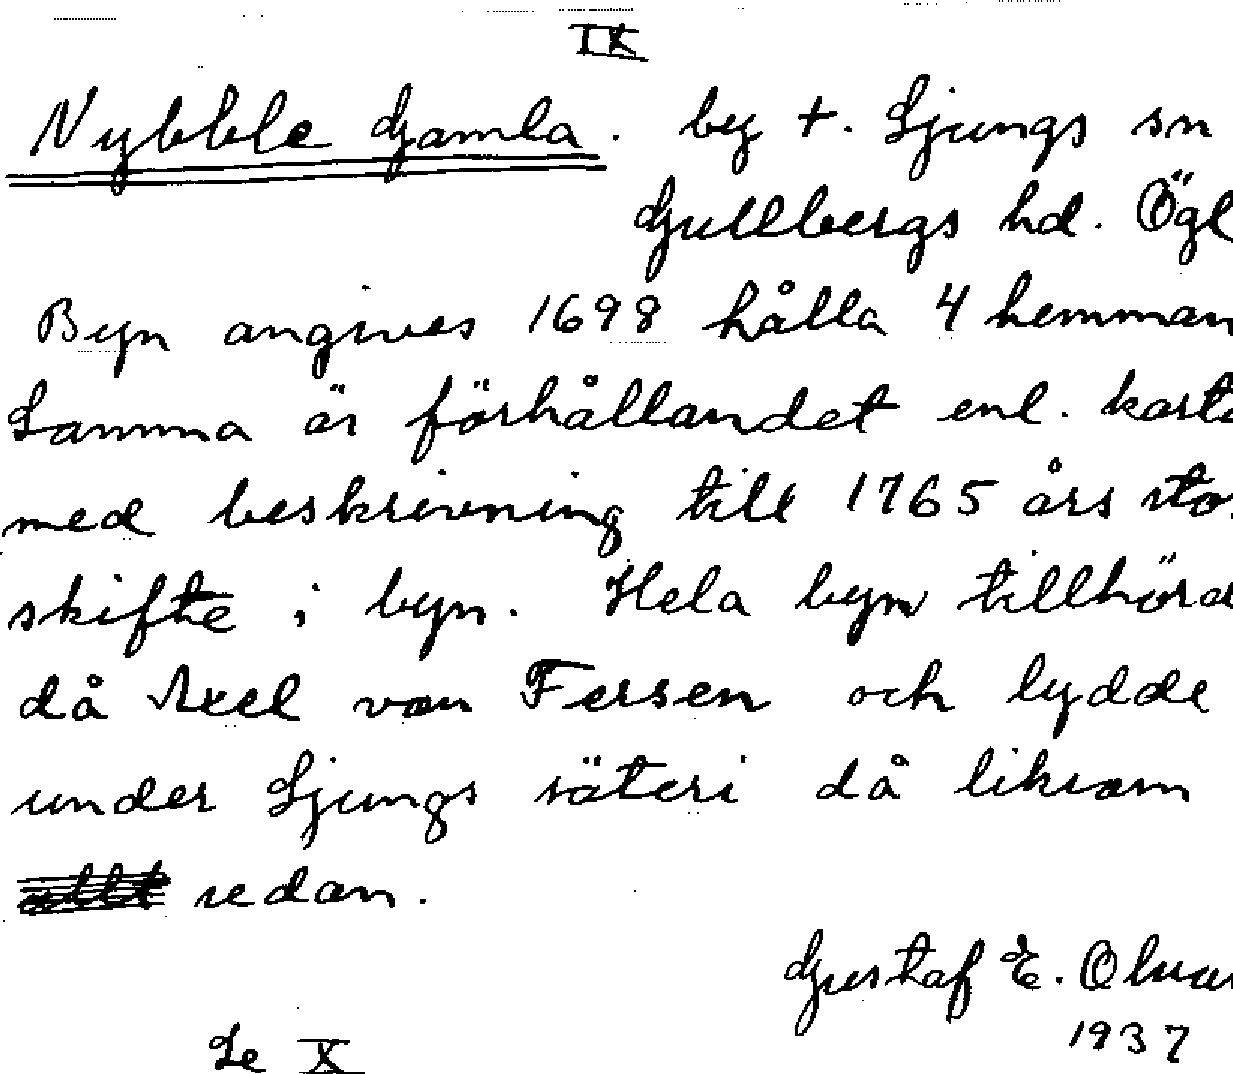 IX
Nybble Gamla. by +. Ljungs sn
Gullbergs hd. Ögl
Byn angives 1698 hålla 4 hemman
Samma är förhållandet enl. karta
med beskrivning till 1765 års sto
skifte i byn. Hela byn tillhörde
då Axel von Fersen och lydde
under Ljungs säteri då liksom
sedan.
Gustaf E.
1937
Se X